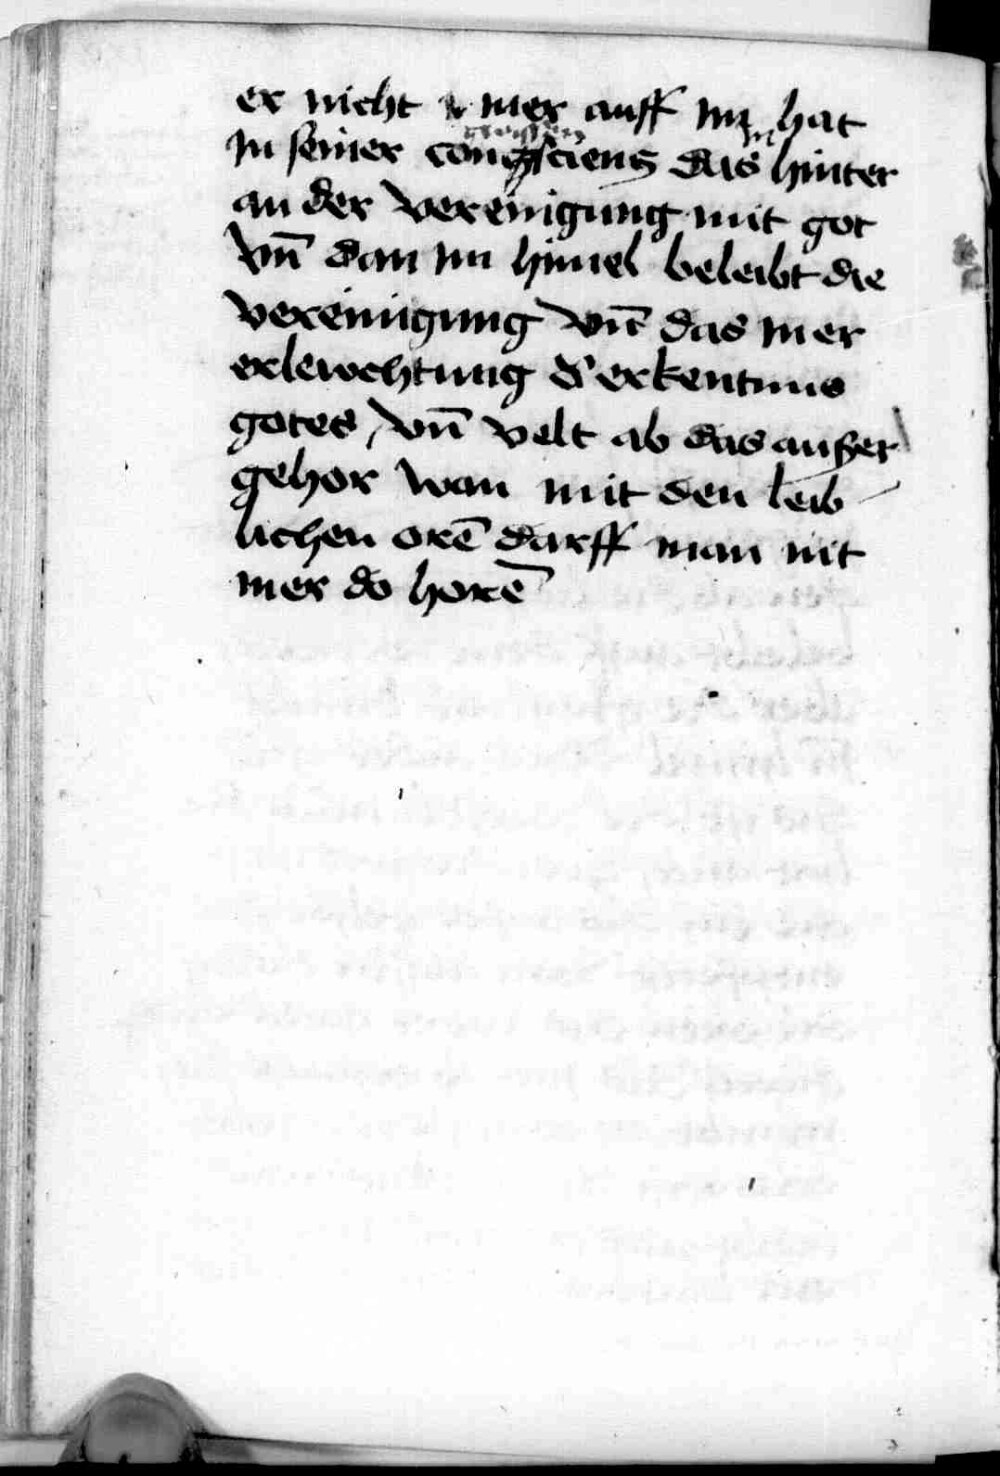 er nicht mer auff im hat
in seiner consciens das in hinter
an der vereinigung mit got
vn̄ dan im himel beleibt die
vereinigung vn̄ das mer
erlewchtung d' erkentnus
gotes / vn̄ velt ab das außer
gehor wan mit den leib
lichen orē darff man nit
mer do horē